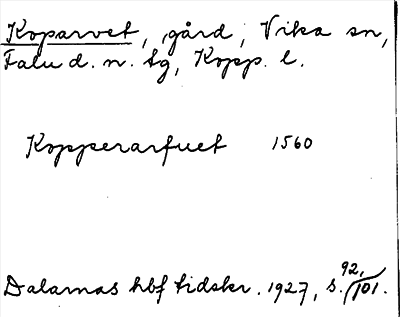 Koparvet, gård, Vika sn,
Falu d. n. tg, Kopp. l.
Kopperarfuet 1560
Dalarnas hbf tidskr. 1927, s. 92, 101.